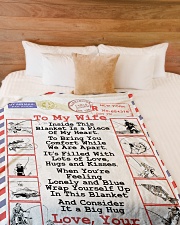 To My Wife
Inside This
Blanket Is a Piece
Of My Heart.
To Bring You
Comfort While
We Are Apart.
It's Filled With
Lots of Love,
Hugs and Kisses.
When You're
Feeling
Lonely and Blue
Wrap Yourself Up
In This Blanket
And Consider
It a Big Hug
Love, Your